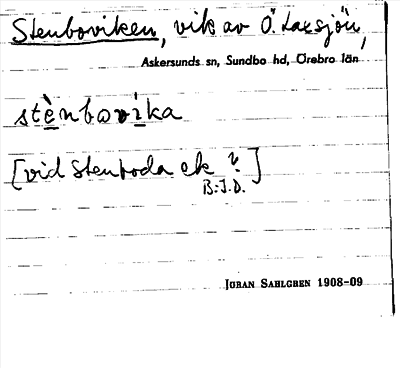 Stenboviken, vik av Ö. Laxsjön,
Askersunds sn, Sundbo hd, Örebro län
stènbovìka
[vid Stenboda ek ?]
B:J.D.
Jöran Sahlgren 1908-09